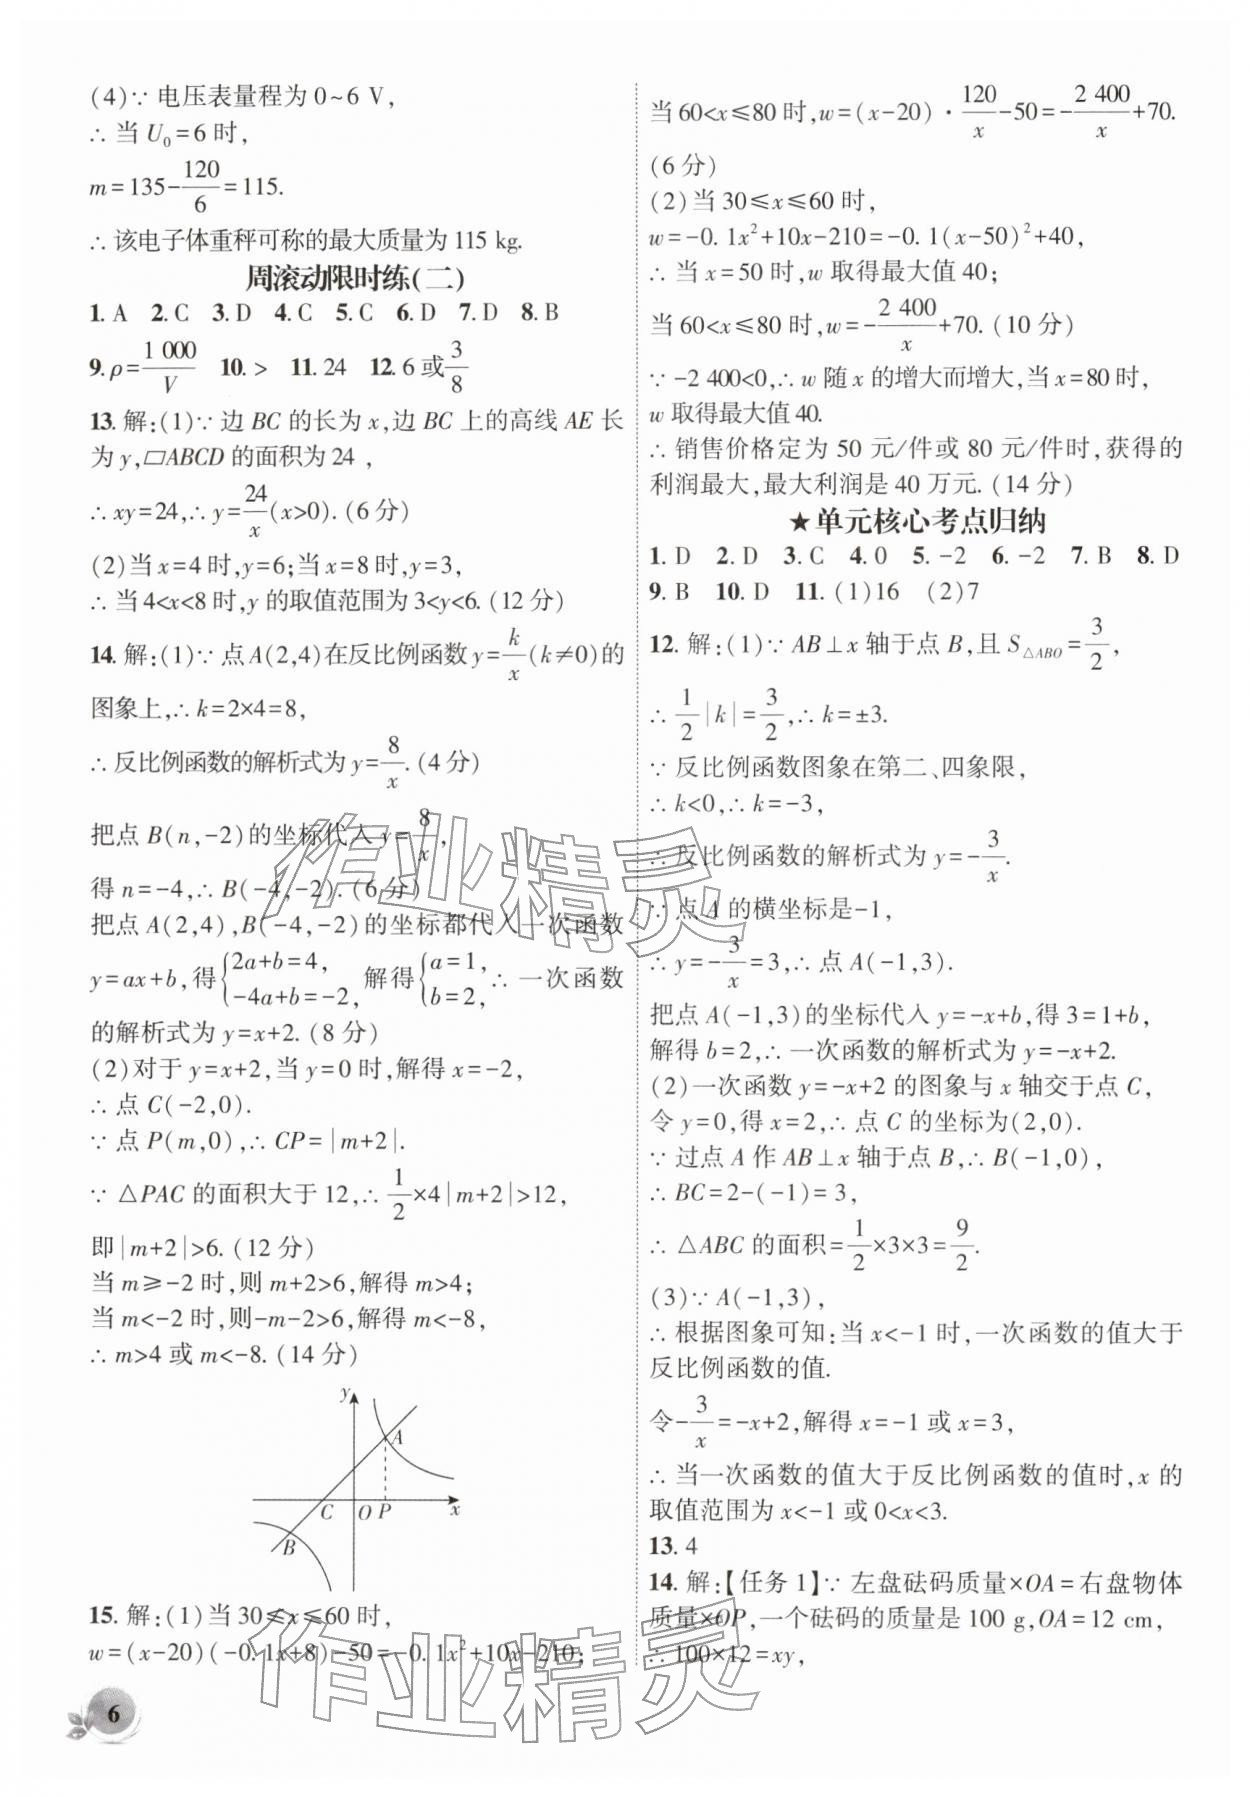 (4)∵ 电压表量程为 0~6 V,
∴ 当 U₀=6 时,
m=135-120/6=115.
∴ 该电子体重秤可称的最大质量为 115 kg.
周滚动限时练(二)
1. A 2. C 3. D 4. C 5. C 6. D 7. D 8. B
9. ρ=1 000/V 10. > 11. 24 12. 6 或 3/8
13. 解:(1)∵ 边 BC 的长为 x,边 BC 上的高线 AE 长
为 y,▱ABCD 的面积为 24 ,
∴ xy=24,∴ y=24/x(x>0). (6 分)
(2)当 x=4 时,y=6;当 x=8 时,y=3,
∴ 当 4<x<8 时,y 的取值范围为 3<y<6. (12 分)
14. 解:(1)∵ 点 A(2,4)在反比例函数 y=k/x(k≠0)的
图象上,∴ k=2×4=8,
∴ 反比例函数的解析式为 y=8/x. (4 分)
把点 B(n,-2)的坐标代入 y=8/x,
得 n=-4,∴ B(-4,-2). (6 分)
把点 A(2,4),B(-4,-2)的坐标都代入一次函数
y=ax+b,得{2a+b=4, -4a+b=-2, 解得{a=1, b=2, ∴ 一次函数
的解析式为 y=x+2. (8 分)
(2)对于 y=x+2,当 y=0 时,解得 x=-2,
∴ 点 C(-2,0).
∵ 点 P(m,0),∴ CP=|m+2|.
∵ △PAC 的面积大于 12,∴ 1/2×4|m+2|>12,
即|m+2|>6. (12 分)
当 m≥-2 时,则 m+2>6,解得 m>4;
当 m<-2 时,则-m-2>6,解得 m<-8,
∴ m>4 或 m<-8. (14 分)
y
A
C O P x
B
15. 解:(1)当 30≤x≤60 时,
w=(x-20)(-0.1x+8)-50=-0.1x²+10x-210;
6
当 60<x≤80 时,w=(x-20)·120/x-50=-2 400/x+70.
(6 分)
(2)当 30≤x≤60 时,
w=-0.1x²+10x-210=-0.1(x-50)²+40,
∴ 当 x=50 时,w 取得最大值 40;
当 60<x≤80 时,w=-2 400/x+70. (10 分)
∵ -2 400<0,∴ w 随 x 的增大而增大,当 x=80 时,
w 取得最大值 40.
∴ 销售价格定为 50 元/件或 80 元/件时,获得的
利润最大,最大利润是 40 万元. (14 分)
★单元核心考点归纳
1. D 2. D 3. C 4. 0 5. -2 6. -2 7. B 8. D
9. B 10. D 11. (1)16 (2)7
12. 解:(1)∵ AB⊥x 轴于点 B,且 S△ABO=3/2,
∴ 1/2|k|=3/2,∴ k=±3.
∵ 反比例函数图象在第二、四象限,
∴ k<0,∴ k=-3,
∴ 反比例函数的解析式为 y=-3/x.
∵ 点 A 的横坐标是-1,
∴ y=-3/x=3,∴ 点 A(-1,3).
把点 A(-1,3)的坐标代入 y=-x+b,得 3=1+b,
解得 b=2,∴ 一次函数的解析式为 y=-x+2.
(2)一次函数 y=-x+2 的图象与 x 轴交于点 C,
令 y=0,得 x=2,∴ 点 C 的坐标为(2,0).
∵ 过点 A 作 AB⊥x 轴于点 B,∴ B(-1,0),
∴ BC=2-(-1)=3,
∴ △ABC 的面积=1/2×3×3=9/2.
(3)∵ A(-1,3),
∴ 根据图象可知:当 x<-1 时,一次函数的值大于
反比例函数的值.
令-3/x=-x+2,解得 x=-1 或 x=3,
∴ 当一次函数的值大于反比例函数的值时,x 的
取值范围为 x<-1 或 0<x<3.
13. 4
14. 解:【任务 1】∵ 左盘砝码质量×OA=右盘物体
质量×OP,一个砝码的质量是 100 g,OA=12 cm,
∴ 100×12=xy,
作业精灵
作业精灵